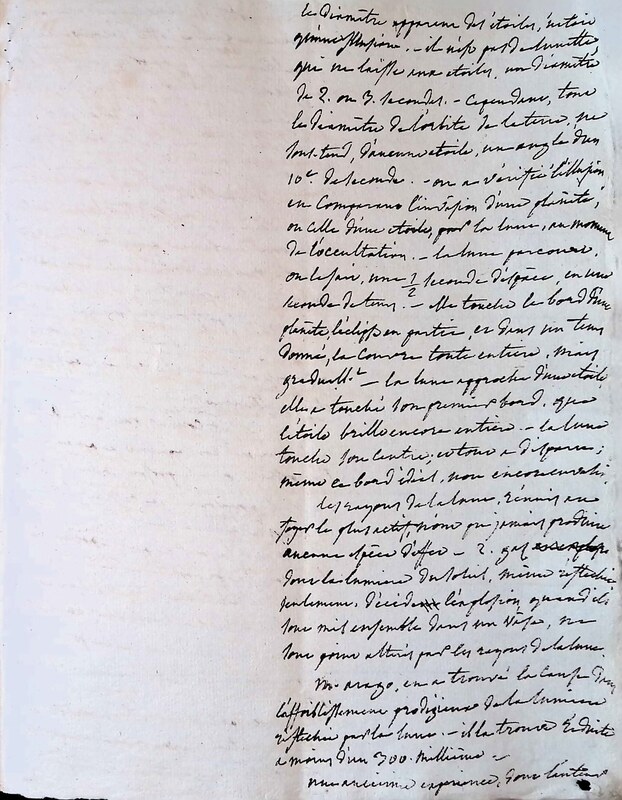 le diamètre apparent des étoiles, n'etoit
qu'une illusion. – il n'est pas de lunette
qui ne laisse aux etoiles, un diamètre
de 2. ou 3. secondes. – cependant, tout
le diamètre de l'orbite de la terre, ne
sous-tend, d'aucune etoile, un angle d'un
10e. de seconde. – on a vérifié l'illusion
en comparant l'invasion d'une planète,
ou celle d'une etoile, par la lune, au moment
de l'occultation. – la lune parcourt,
on le sait, une 1/2 seconde d'espace, en une
seconde de tems. – elle touche le bord d'une
planète, l'éclipse en partie, et dans un tems
donné, la couvre toute entiere, mais
graduellt. – la lune approche d'une etoile
elle a touché son premier bord, que
l'étoile brille encore entiere. – la lune
touche son centre, et tout a disparu;
même ce bord idéal, non encore envahi.
les rayons de la lune, réunis au
foyer le plus actif, n'ont pu jamais produire
aucune espèce d'effet – 2. gaz
dont la lumiere du soleil, même réfléchie
seulement, décide l'explosion, quand ils
sont mis ensemble dans un vase, ne
sont point altérés par les rayons de la lune.
M. arago, en a trouvé la cause dans
l'affoiblissement prodigieux de la lumiere
réfléchie par la lune. – il la trouve réduite
a moins d'un 300. millième –
une ancienne experience, dont